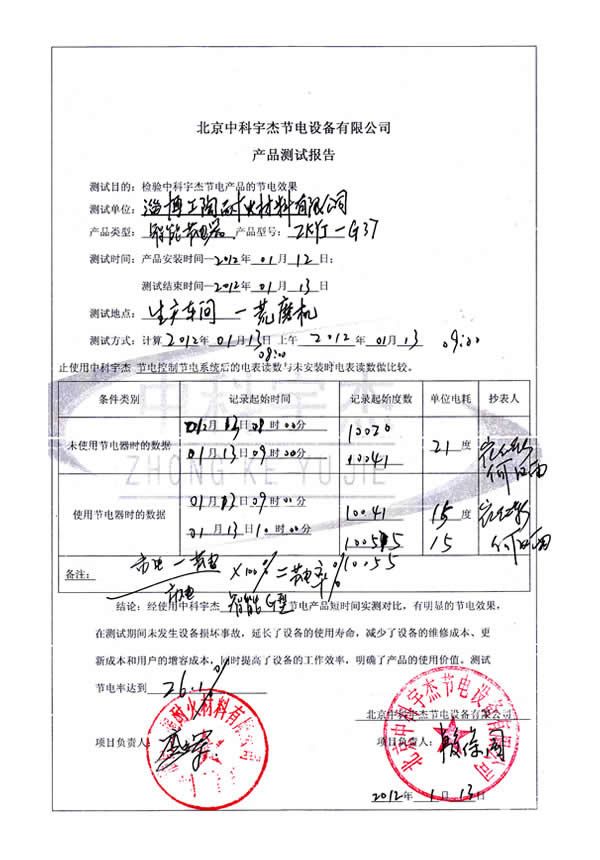 北京中科宇杰节电设备有限公司
产品测试报告
测试目的：检验中科宇杰节电产品的节电效果
测试单位：淄博工陶耐火材料有限公司
产品类型：智能节电器 产品型号：ZKYJ-G37
测试时间：产品安装时间—2012年01月12日；
测试结束时间—2012年01月13日
测试地点：生产车间 一荒磨机
测试方式：计算2012年01月13日上午 2012年01月13 09:00
08:00
止使用中科宇杰 节电控制节电系统后的电表读数与未安装时电表读数做比较。
条件类别 记录起始时间 记录起始度数 单位电耗 抄表人
未使用节电器时的数据 01月13日08时00分 10020 21度
01月13日09时00分 10041
使用节电器时的数据 01月13日09时00分 10041 15度
01月13日10时00分 15
10055
备注： 市电—节电 ×100%=节电率%
市电
中科宇杰
ZHONG KE YU JIE
结论：经使用中科宇杰 智能G型 节电产品短时间实测对比，有明显的节电效果，
在测试期间未发生设备损坏事故，延长了设备的使用寿命，减少了设备的维修成本、更
新成本和用户的增容成本，同时提高了设备的工作效率，明确了产品的使用价值。测试
节电率达到 26.1%
北京中科宇杰节电设备有限公司
项目负责人： 项目负责人：
耐火材料有限公司
北京中科宇杰节电设备有限公司
2012年1月13日